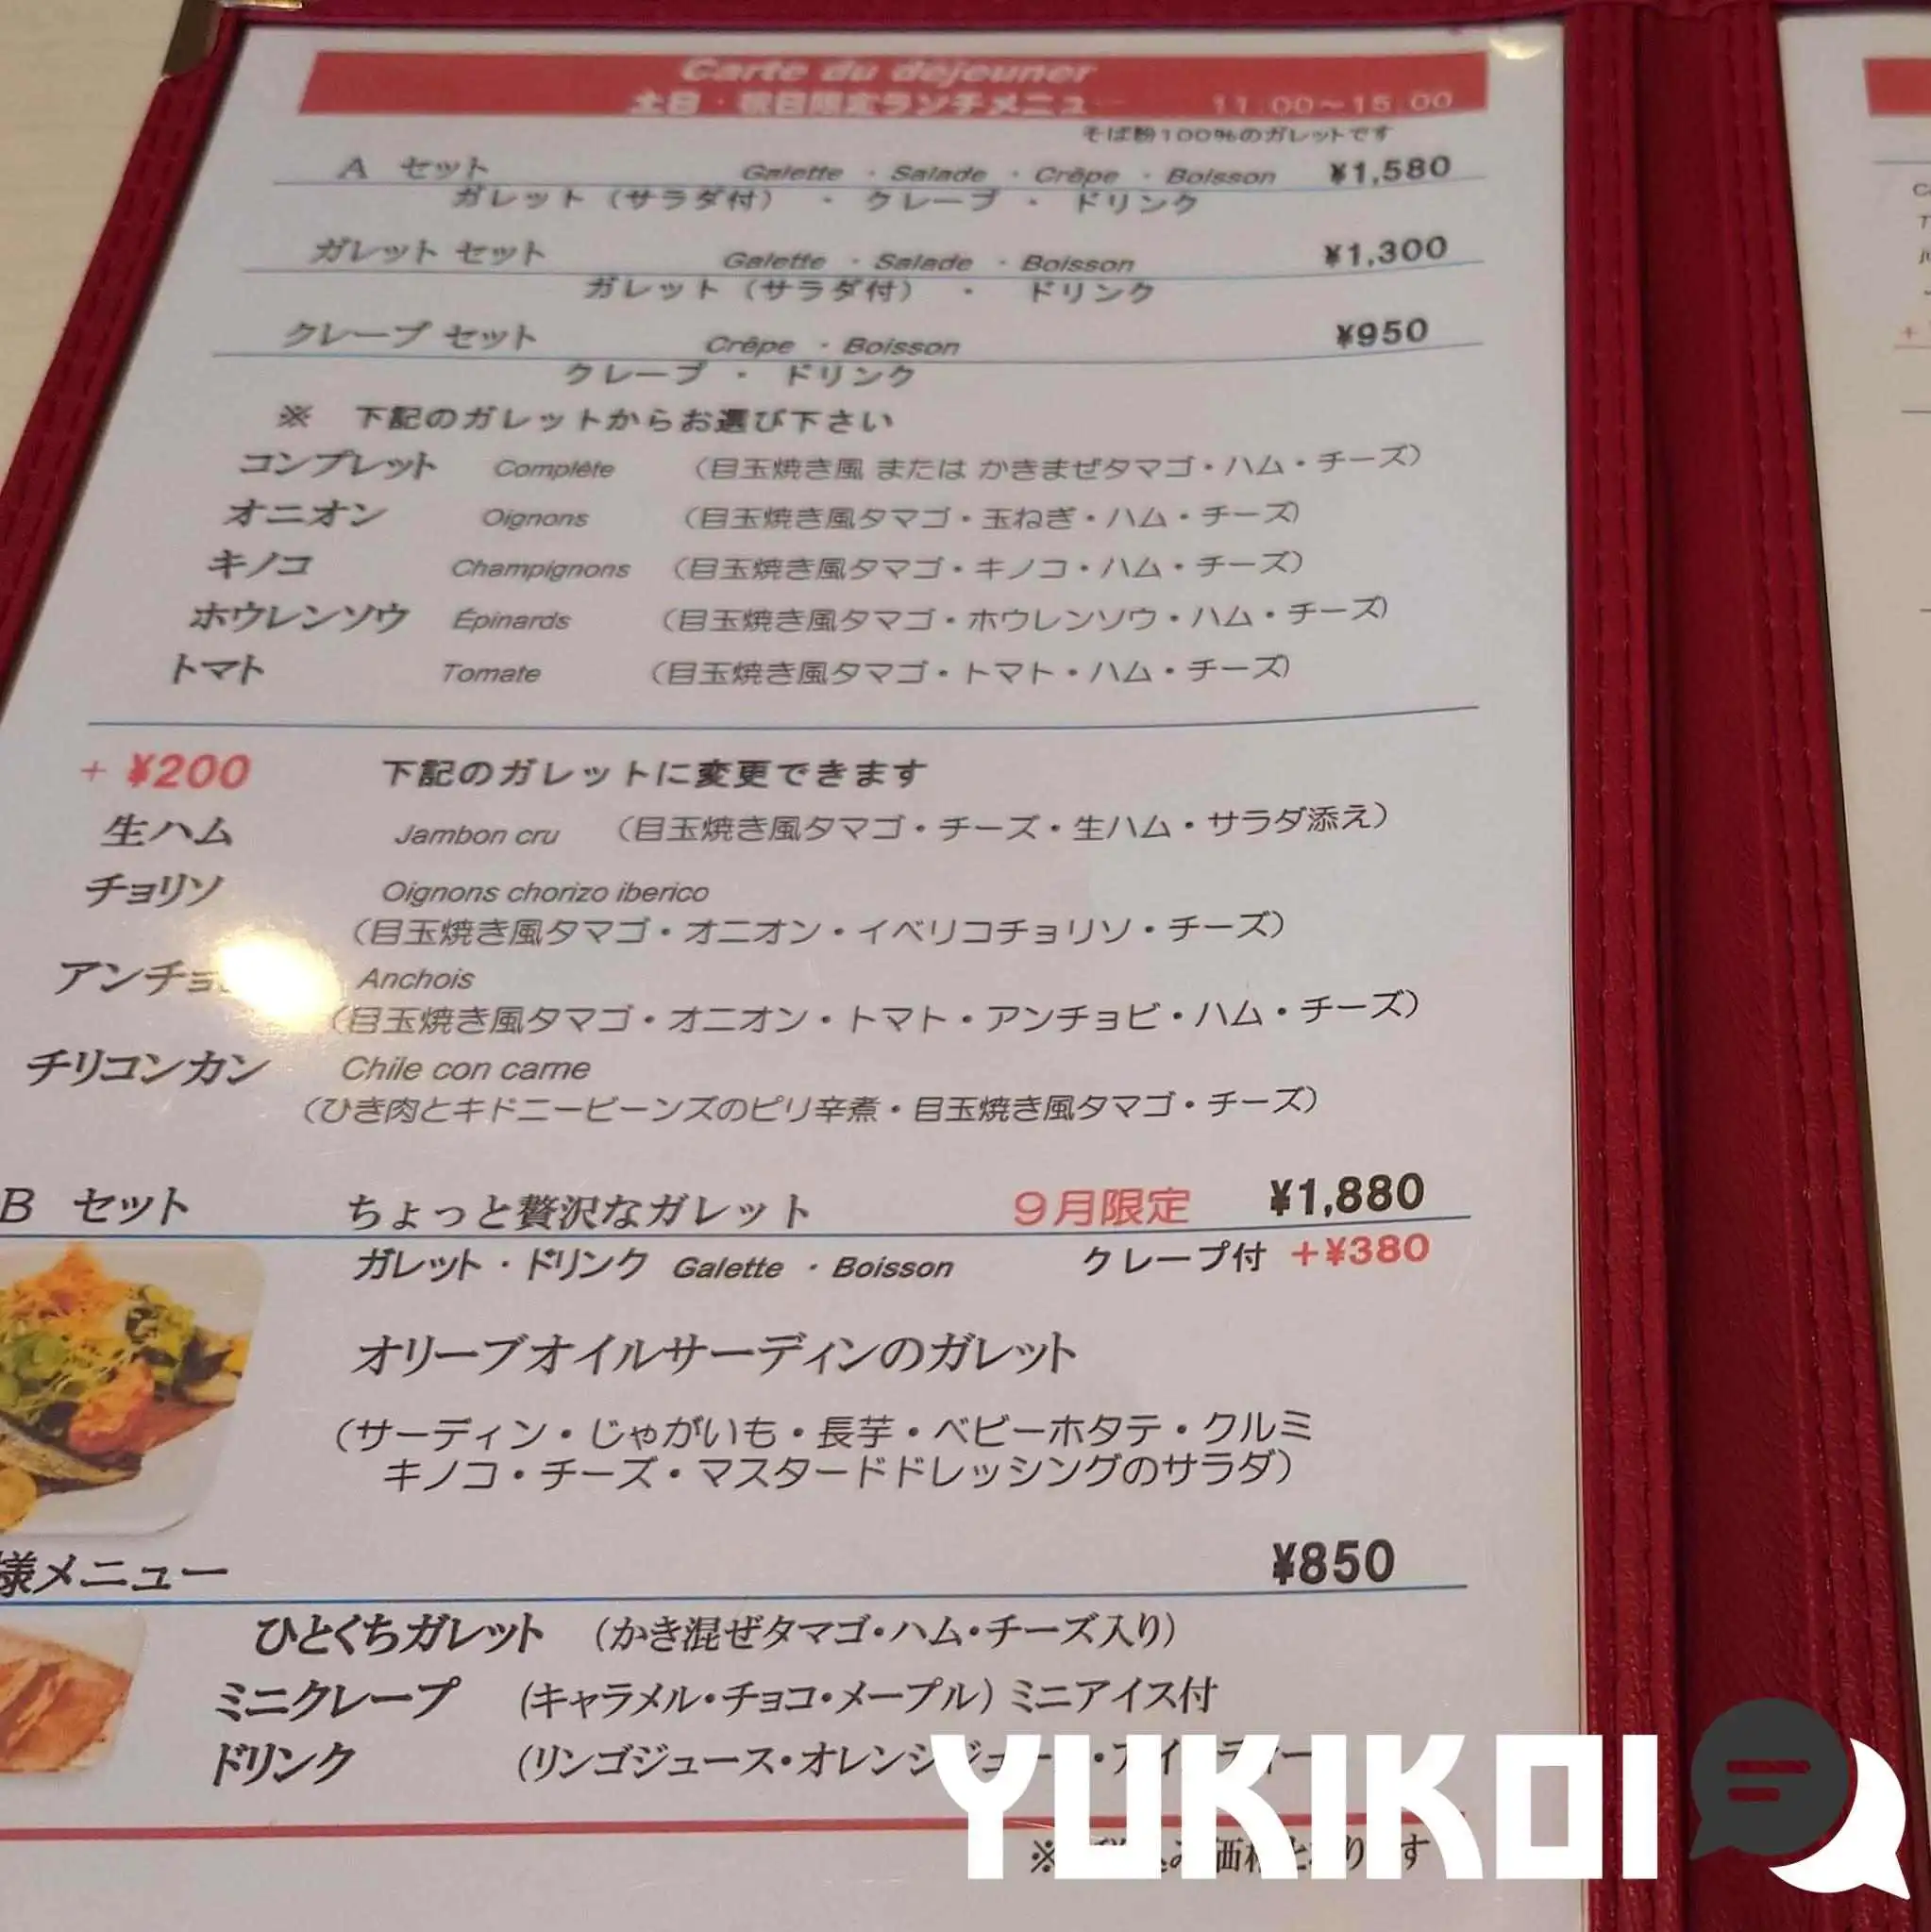 Carte du déjeuner
土日・祝日限定ランチメニュー 11:00～15:00
そば粉100%のガレットです
A セット Galette ・ Salade ・ Crêpe ・ Boisson ¥1,580
ガレット（サラダ付） ・ クレープ ・ ドリンク
ガレット セット Galette ・ Salade ・ Boisson ¥1,300
ガレット（サラダ付） ・ ドリンク
クレープ セット Crêpe ・ Boisson ¥950
クレープ ・ ドリンク
※ 下記のガレットからお選び下さい
コンプレット Complète （目玉焼き風 または かきまぜタマゴ・ハム・チーズ）
オニオン Oignons （目玉焼き風タマゴ・玉ねぎ・ハム・チーズ）
キノコ Champignons （目玉焼き風タマゴ・キノコ・ハム・チーズ）
ホウレンソウ Épinards （目玉焼き風タマゴ・ホウレンソウ・ハム・チーズ）
トマト Tomate （目玉焼き風タマゴ・トマト・ハム・チーズ）
+ ¥200 下記のガレットに変更できます
生ハム Jambon cru （目玉焼き風タマゴ・チーズ・生ハム・サラダ添え）
チョリソ Oignons chorizo iberico
（目玉焼き風タマゴ・オニオン・イベリコチョリソ・チーズ）
アンチョ Anchois
（目玉焼き風タマゴ・オニオン・トマト・アンチョビ・ハム・チーズ）
チリコンカン Chile con carne
（ひき肉とキドニービーンズのピリ辛煮・目玉焼き風タマゴ・チーズ）
B セット ちょっと贅沢なガレット 9月限定 ¥1,880
ガレット・ドリンク Galette ・ Boisson クレープ付 +¥380
オリーブオイルサーディンのガレット
（サーディン・じゃがいも・長芋・ベビーホタテ・クルミ
キノコ・チーズ・マスタードドレッシングのサラダ）
様メニュー ¥850
ひとくちガレット （かき混ぜタマゴ・ハム・チーズ入り）
ミニクレープ （キャラメル・チョコ・メープル）ミニアイス付
ドリンク （リンゴジュース・オレンジジュース・アイスティー
YUKIKOI